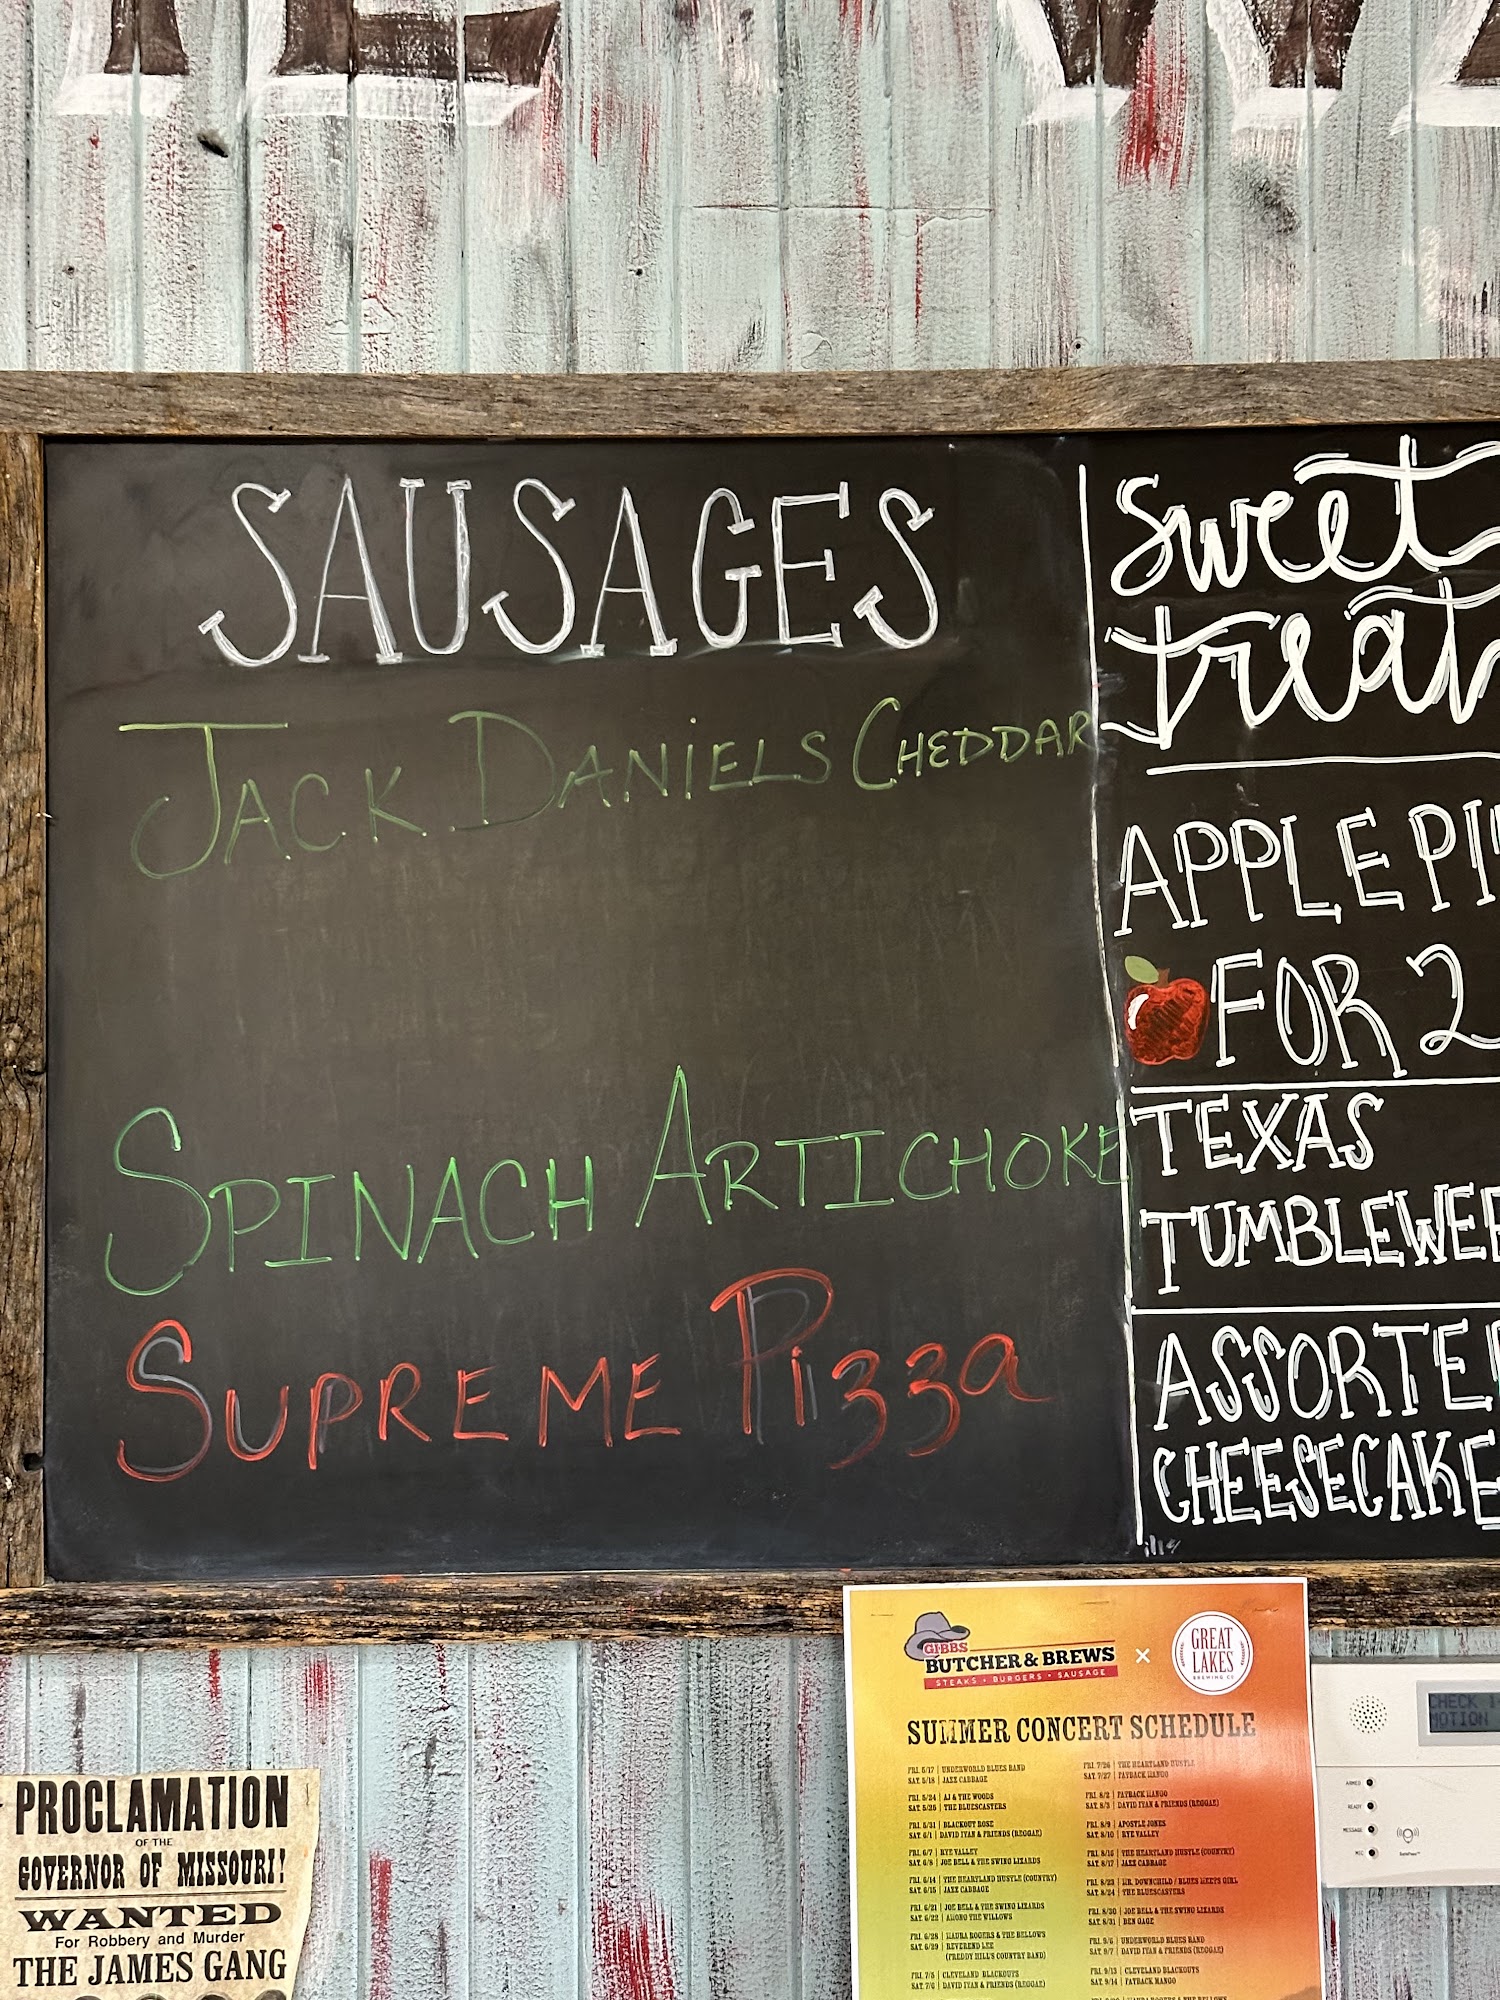 SAUSAGES
JACK DANIELS CHEDDAR
SPINACH ARTICHOKE
SUPREME Pizza
sweet
APPLE
FOR 2
TEXAS
ASSORTED
CHEESECAKE
GIBBS
BUTCHER & BREWS
STEAKS • BURGERS • SAUSAGE
X
GREAT
LAKES
BREWING CO
SUMMER CONCERT SCHEDULE
FRI. 5/17 | UNDERWORLD BLUES BAND
SAT. 5/18 | JAZZ CABBAGE
FRI. 5/24 | AJ & THE WOODS
SAT. 5/25 | THE BLUESCASTERS
FRI. 5/31 | BLACKOUT ROSE
SAT. 6/1 | DAVID IVAN & FRIENDS (REGGAE)
FRI. 6/7 | RYE VALLEY
SAT. 6/8 | JOE BELL & THE SWING LIZARDS
FRI. 6/14 | THE HEARTLAND HUSTLE (COUNTRY)
SAT. 6/15 | JAZZ CABBAGE
FRI. 6/21 | JOE BELL & THE SWING LIZARDS
SAT. 6/22 | AMONG THE WILLOWS
FRI. 6/28 | MAURA ROGERS & THE BELLOWS
SAT. 6/29 | REVEREND LEE
(FREDDY HILL'S COUNTRY BAND)
FRI. 7/5 | CLEVELAND BLACKOUTS
SAT. 7/6 | DAVID IVAN & FRIENDS (REGGAE)
FRI. 7/26 | THE HEARTLAND HUSTLE
SAT. 7/27 | PAYBACK MANGO
FRI. 8/2 | PAYBACK MANGO
SAT. 8/3 | DAVID IVAN & FRIENDS (REGGAE)
FRI. 8/9 | APOSTLE JONES
SAT. 8/10 | RYE VALLEY
FRI. 8/16 | THE HEARTLAND HUSTLE (COUNTRY)
SAT. 8/17 | JAZZ CABBAGE
FRI. 8/23 | MR. DOWNCHILD / BLUES MEETS GIRL
SAT. 8/24 | THE BLUESCASTERS
FRI. 8/30 | JOE BELL & THE SWING LIZARDS
SAT. 8/31 | BEN GAGE
FRI. 9/6 | UNDERWORLD BLUES BAND
SAT. 9/7 | DAVID IVAN & FRIENDS (REGGAE)
FRI. 9/13 | CLEVELAND BLACKOUTS
SAT. 9/14 | PAYBACK MANGO
CHECK
MOTION
ARMED
READY
MESSAGE
MIC
PROCLAMATION
OF THE
GOVERNOR OF MISSOURI!
WANTED
For Robbery and Murder
THE JAMES GANG